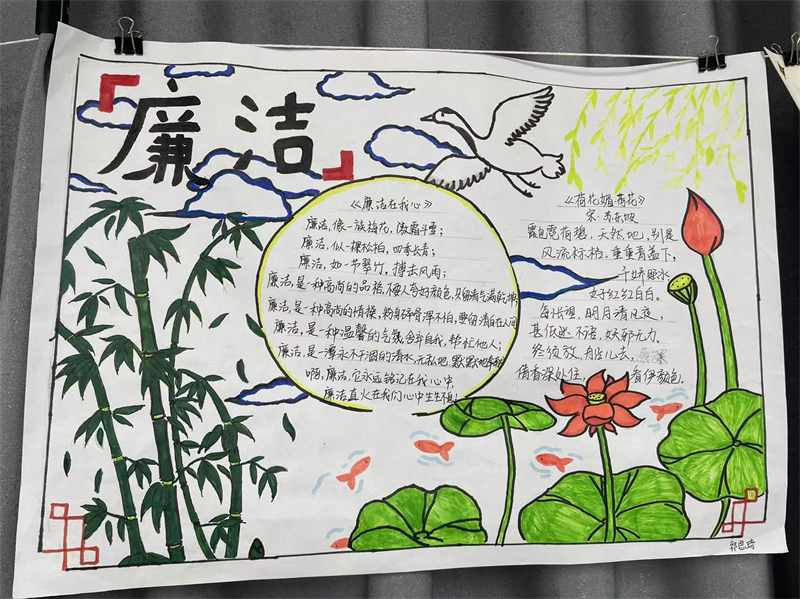 廉洁
《廉洁在我心》
廉洁,像一族梅花,傲霜斗雪;
廉洁,似一棵松柏,四季长青;
廉洁,如一节翠竹,搏击风雨;
廉洁,是一种高尚的品格,不要人夸好颜色,只留清气满乾坤
廉洁,是一种高尚的情操,粉身碎骨浑不怕,要留清白在人间
廉洁,是一种温馨的气氛,舍弃自我,帮忙他人;
廉洁,是一潭永不干涸的清水,无私地,默默地奉献
啊,廉洁,它永远铭记在我心中
廉洁直火在我们心中生生不息!
《荷花媚·荷花》
宋·苏东坡
霞苞霓荷碧,天然地,别是
风流标格。重重青盖下,
千娇照水
好红红白白。
每怅望,明月清风夜,
甚低迷不语,妖邪无力。
终须放,船儿去,
清香深处住,看伊颜色。